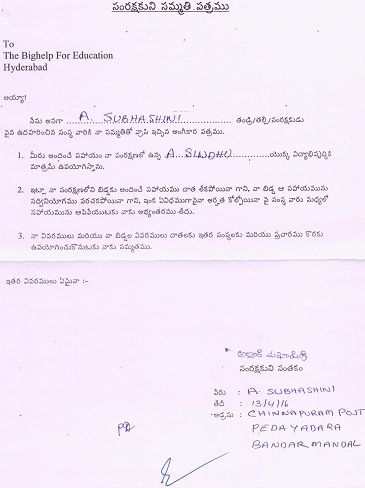 సంరక్షకుని సమ్మతి పత్రము
To
The Bighelp For Education
Hyderabad
అయ్యా!
నేను అనగా A. SUBHASHINI తండ్రి/తల్లి/సంరక్షకుడు
పైన ఉదహరించిన సంస్థ వారికి నా సమ్మతితో వ్రాసి ఇచ్చిన అంగీకార పత్రము.
1. మీరు అందించే సహాయం నా సంరక్షణలో ఉన్న A SINDHU యొక్క విద్యాభివృద్ధికి
మాత్రమే ఉపయోగిస్తాను.
2. ఇట్లా నా సంరక్షణలోని బిడ్డకు అందించే సహాయము దాత లేకపోయినా గాని, నా బిడ్డ ఆ సహాయమును
సద్వినియోగము పరచకపోయినా గాని, ఇంక ఏవిధముగానైనా అర్హత కోల్పోయినా పై సంస్థ వారు మధ్యలో
సహాయమును ఆపివేయుటకు నాకు అభ్యంతరము లేదు.
3. నా వివరములు మరియు నా బిడ్డల వివరములు దాతలకు ఇతర సంస్థలకు మరియు ప్రచారము కొరకు
ఉపయోగించుకొనుటకు నాకు సమ్మతము.
ఇతర వివరములు ఏమైనా :-
సంరక్షకుని సంతకం
పేరు : A. SUBHASHINI
తేది : 13/4/16
అడ్రసు : CHINNAPURAM POST
PEDAYADARA
BANDAR MANDAL